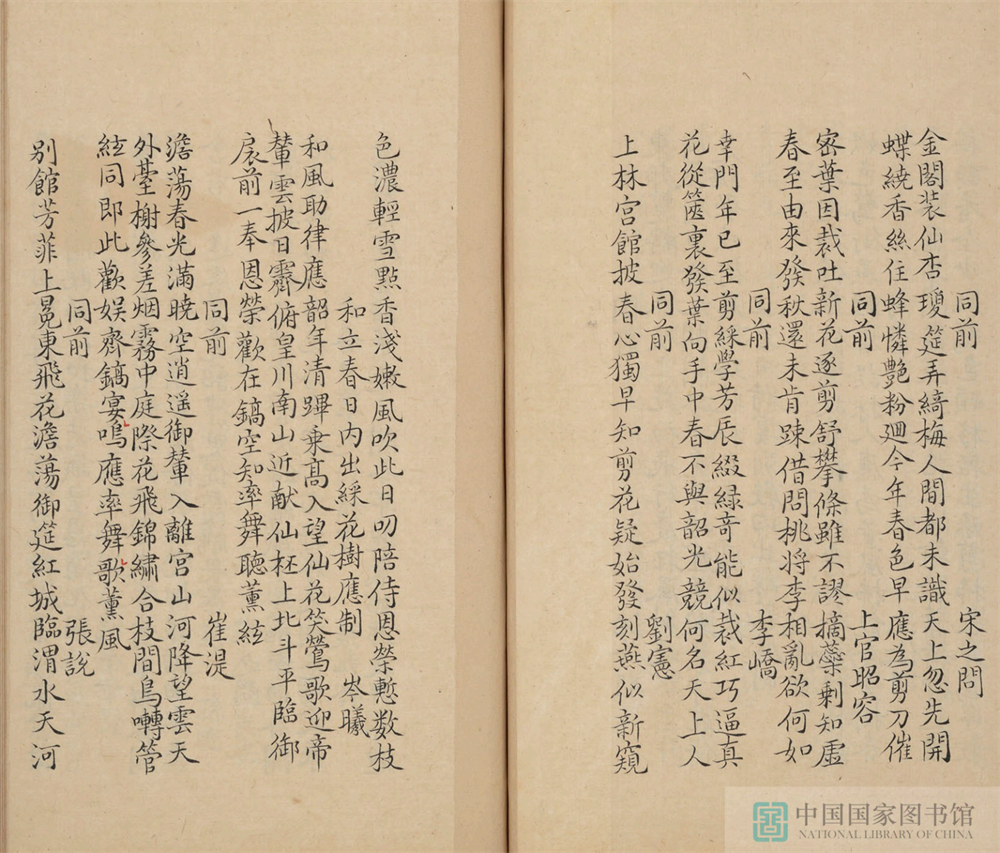 同前 宋之問
金閣裝仙杏瓊筵弄綺梅人間都未識天上忽先開
蝶繞香絲住蜂憐艷粉廻今年春色早應為剪刀催
同前 上官昭容
宻葉因裁吐新花逐剪舒攀條雖不謬摘蘂剩知虛
春至由來發秋還未肯踈借問桃将李相亂欲何如
同前 李嶠
幸門年已至剪綵學芳辰綴緑竒能似裁紅巧逼真
花從篋裏發葉向手中春不與韶光競何名天上人
同前 劉憲
上林宫館披春心獨早知剪花疑始發刻燕似新窺
色濃輕雪點香淺嫩風吹此日叨陪侍恩榮慙数枝
和立春日内出綵花樹應制 岑曦
和風助律應韶年清蹕乗髙入望仙花笑鶯歌迎帝
輦雲披日霽俯皇川南山近献仙柸上北斗平臨御
扆前一奉恩榮歡在鎬空知率舞聴薫絃
同前 崔湜
澹蕩春光滿曉空逍遥御輦入離宫山河降望雲天
外臺榭參差烟霧中庭際花飛錦繡合枝間鳥囀管
絃同即此歡娱齊鎬宴嗚應率舞歌薫風
同前 張說
别館芳菲上㫤東飛花澹蕩御筵紅城臨渭水天河
中国国家图书馆
NATIONAL LIBRARY OF CHINA